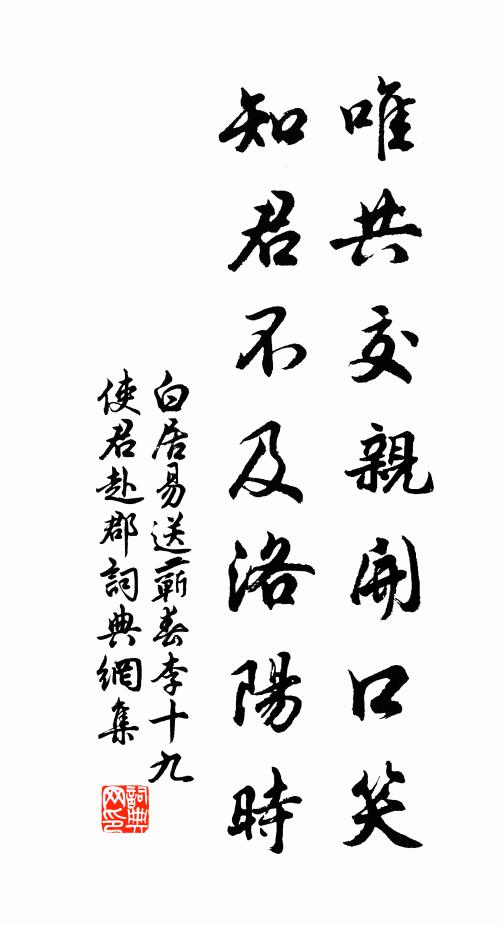 唯共交親開口笑
知君不及洛陽時
白居易送蘄春李十九
使君赴郡詞典網集
詞典
網印